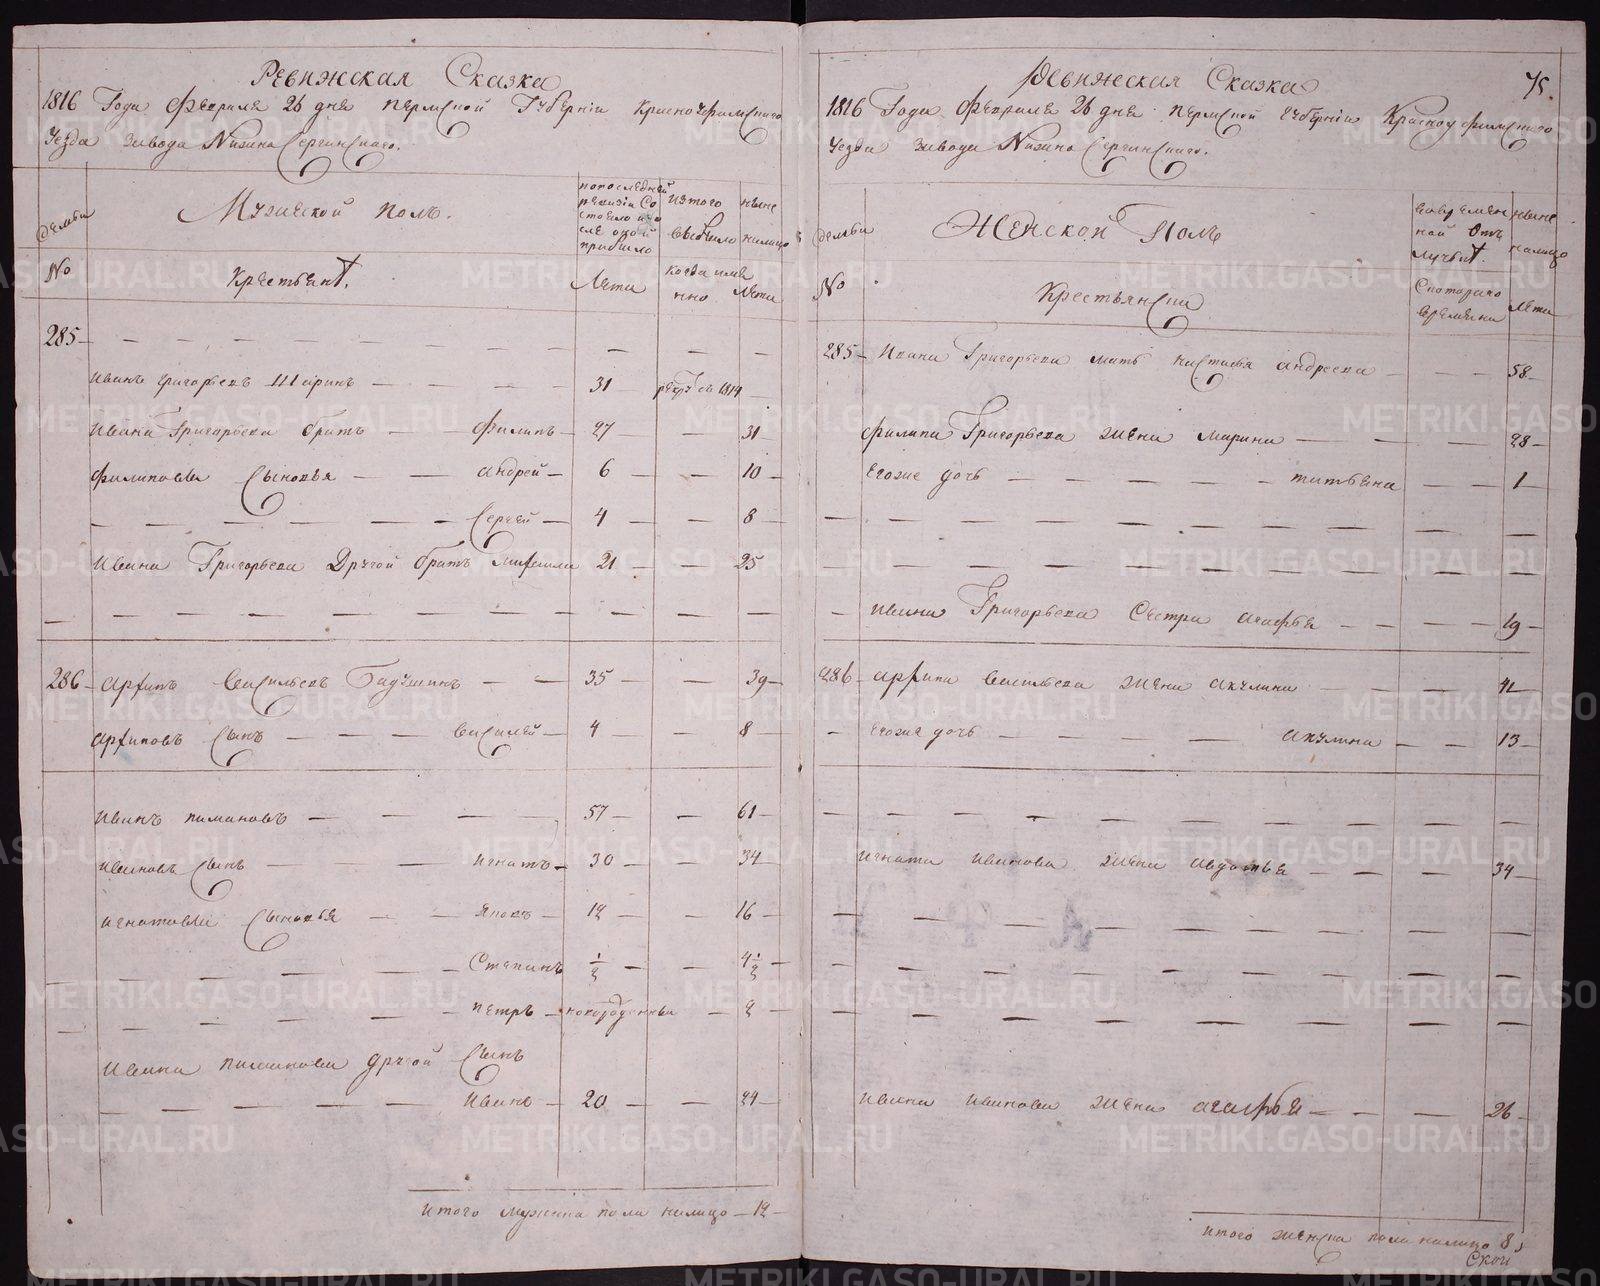 Ревижская Сказка
1816 Года Февраля 26 дня Пермской Губерніи Красноуфимскаго
Уезда завода Нижна Сергинскаго.
семьи
Мужеской полъ.
попоследней ревизіи Состояло и после оной прибыло
изтого выбыло
ныне налицо
№
Крестьянъ.
Лета
когда имянно
Лета
285 — — — — — —
иванъ григорьевъ Шаринъ — — 31 рекрутъ 1814
ивана Григорьева братъ — Филипъ — 27 — 31 —
филиповы Сыновья — — андрей — 6 — 10 —
— — — Сергей — 4 — 8 —
ивана Григорьева Другой братъ михаила 21 — 25
— — — — — —
286 — архипъ васильевъ Бадушинъ — — 35 — 39 —
архиповъ Сынъ — — — василей — 4 — 8 —
иванъ пимановъ — — — 57 — 61 —
ивановъ Сынъ — — игнатъ — 30 — 34 —
игнатовы Сыновья — — Яковъ — 12 — 16 —
— — — Степанъ 1/2 — 4 1/2 —
— — — петръ — новорожденны — 2 —
ивана пиманова другой Сынъ
— — — иванъ — 20 — 24 —
итого мужска пола налицо — 12 —
Ревижская Сказка
75.
1816 Года Февраля 26 дня Пермской Губерніи Красноуфимскаго
Уезда завода Нижна Сергинскаго.
семьи
Женской Полъ
вовременной отлучки
ныне налицо
№
Крестьянски
Скотораго времени
Лета
285 — Ивана Григорьева мать настасья андреева — — 58 —
филипа Григорьева жена марина — — — 28 —
Егоже дочь — — — татьяна — — 1 —
— — — — — —
— — — — — —
— ивана Григорьева Сестра агафья — — — 19 —
286 — архипа васильева жена акулина — — — 41 —
— Егоже дочь — — — акулина — — 13 —
— — — — — —
игната иванова жена авдотья — — — 34 —
— — — — — —
— — — — — —
— — — — — —
ивана иванова жена агафья — — — 26 —
итого женска пола налицо 8
Скои
METRIKI.GASO-URAL.RU